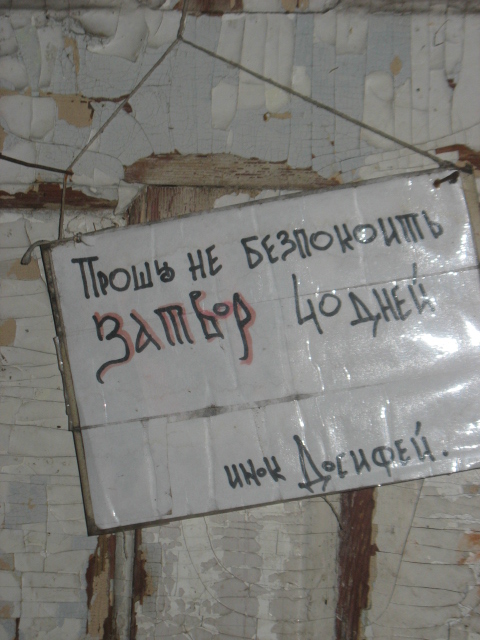 Прошѹ не безпокоить
Затвор 40 дней
инок Досифей.